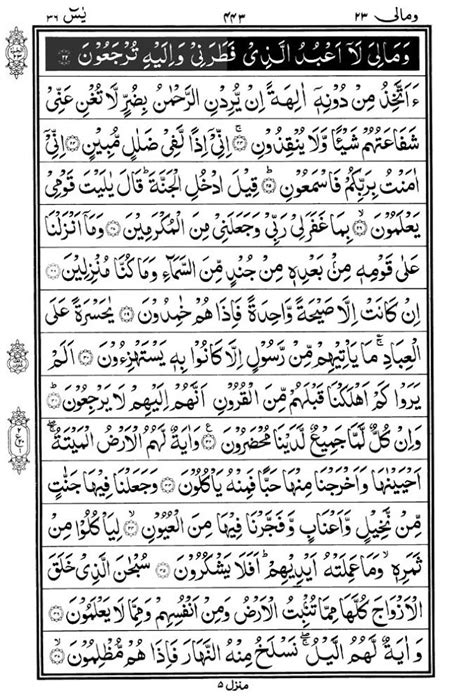 ومالی ٢٣
٤٤٣
یٰسٓ ٣٦
وَمَا لِیَ لَاۤ اَعْبُدُ الَّذِیْ فَطَرَنِیْ وَاِلَیْهِ تُرْجَعُوْنَ ۟۲۲
ءَاَتَّخِذُ مِنْ دُوْنِهٖۤ اٰلِهَةً اِنْ یُّرِدْنِ الرَّحْمٰنُ بِضُرٍّ لَّا تُغْنِ عَنِّیْ
شَفَاعَتُهُمْ شَیْـًٔا وَّلَا یُنْقِذُوْنِ ۟ۚ۲۳ اِنِّیْۤ اِذًا لَّفِیْ ضَلٰلٍ مُّبِیْنٍ ۟۲۴ اِنِّیْۤ
اٰمَنْتُ بِرَبِّكُمْ فَاسْمَعُوْنِ ۟ؕ۲۵ قِیْلَ ادْخُلِ الْجَنَّةَ ؕ قَالَ یٰلَیْتَ قَوْمِیْ
یَعْلَمُوْنَ ۟ۙ۲۶ بِمَا غَفَرَ لِیْ رَبِّیْ وَجَعَلَنِیْ مِنَ الْمُكْرَمِیْنَ ۟۲۷ وَمَاۤ اَنْزَلْنَا
عَلٰی قَوْمِهٖ مِنْۢ بَعْدِهٖ مِنْ جُنْدٍ مِّنَ السَّمَآءِ وَمَا كُنَّا مُنْزِلِیْنَ ۟۲۸
اِنْ كَانَتْ اِلَّا صَیْحَةً وَّاحِدَةً فَاِذَا هُمْ خٰمِدُوْنَ ۟۲۹ یٰحَسْرَةً عَلَی
الْعِبَادِ ۚؔ مَا یَاْتِیْهِمْ مِّنْ رَّسُوْلٍ اِلَّا كَانُوْا بِهٖ یَسْتَهْزِءُوْنَ ۟۳۰ اَلَمْ
یَرَوْا كَمْ اَهْلَكْنَا قَبْلَهُمْ مِّنَ الْقُرُوْنِ اَنَّهُمْ اِلَیْهِمْ لَا یَرْجِعُوْنَ ۟ؕ۳۱
وَاِنْ كُلٌّ لَّمَّا جَمِیْعٌ لَّدَیْنَا مُحْضَرُوْنَ ۟۳۲ وَاٰیَةٌ لَّهُمُ الْاَرْضُ الْمَیْتَةُ ۚۖ
اَحْیَیْنٰهَا وَاَخْرَجْنَا مِنْهَا حَبًّا فَمِنْهُ یَاْكُلُوْنَ ۟۳۳ وَجَعَلْنَا فِیْهَا جَنّٰتٍ
مِّنْ نَّخِیْلٍ وَّاَعْنَابٍ وَّفَجَّرْنَا فِیْهَا مِنَ الْعُیُوْنِ ۟ۙ۳۴ لِیَاْكُلُوْا مِنْ
ثَمَرِهٖ ۙ وَمَا عَمِلَتْهُ اَیْدِیْهِمْ ؕ اَفَلَا یَشْكُرُوْنَ ۟۳۵ سُبْحٰنَ الَّذِیْ خَلَقَ
الْاَزْوَاجَ كُلَّهَا مِمَّا تُنْۢبِتُ الْاَرْضُ وَمِنْ اَنْفُسِهِمْ وَمِمَّا لَا یَعْلَمُوْنَ ۟۳۶
وَاٰیَةٌ لَّهُمُ الَّیْلُ ۚۖ نَسْلَخُ مِنْهُ النَّهَارَ فَاِذَا هُمْ مُّظْلِمُوْنَ ۟ۙ۳۷
منزل ٥